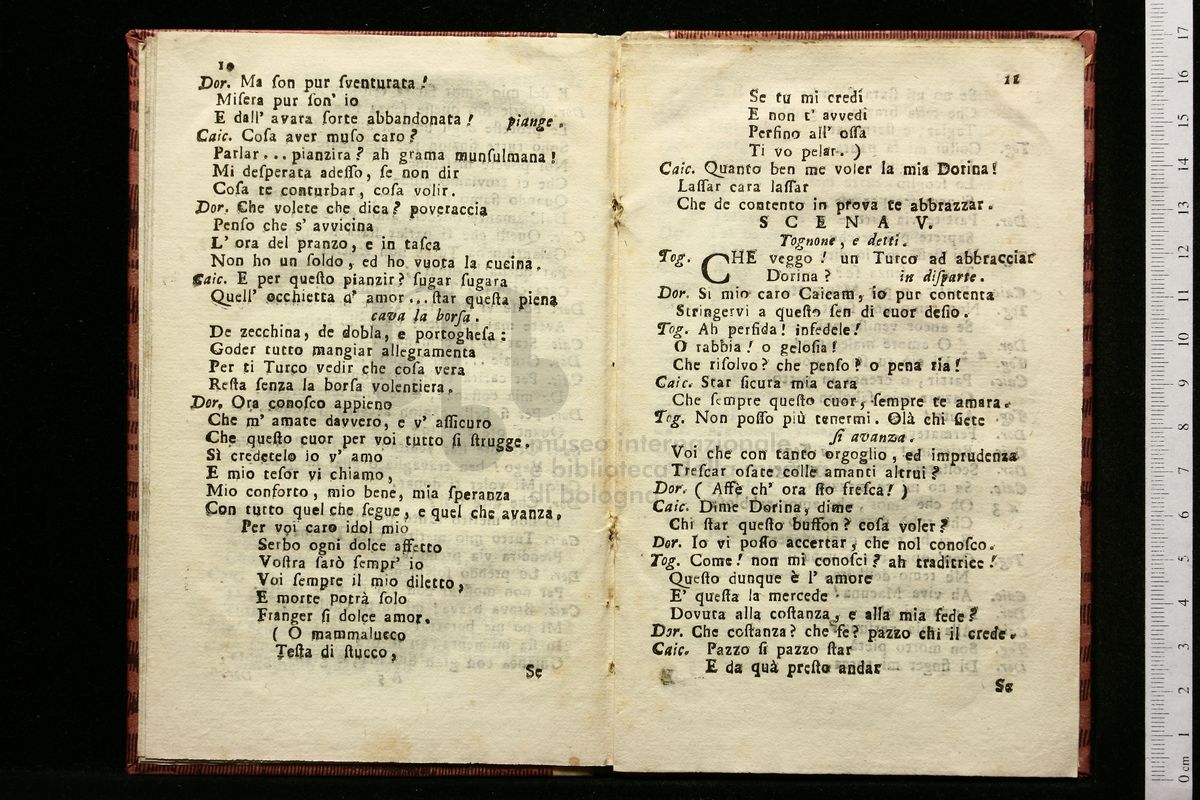 10
Dor. Ma ſon pur ſventurata!
Miſera pur ſon' io
E dall' avara ſorte abbandonata! piange.
Caic. Coſa aver muſo caro?
Parlar... pianzira? ah grama munſulmana!
Mi deſperata adeſſo, ſe non dir
Coſa te conturbar, coſa volir.
Dor. Che volete che dica? poveraccia
Penſo che s' avvicina
L' ora del pranzo, e in taſca
Non ho un ſoldo, ed ho vuota la cucina.
Caic. E per queſto pianzir? ſugar ſugara
Quell' occhietta d' amor... ſtar queſta piena
cava la borſa.
De zecchina, de dobla, e portogheſa:
Goder tutto mangiar allegramenta
Per ti Turco vedir che coſa vera
Reſta ſenza la borſa volentiera.
Dor. Ora conoſco appieno
Che m' amate davvero, e v' aſſicuro
Che queſto cuor per voi tutto ſi ſtrugge.
Sì credetelo io v' amo
E mio teſor vi chiamo,
Mio conforto, mio bene, mia ſperanza
Con tutto quel che ſegue, e quel che avanza.
Per voi caro idol mio
Serbo ogni dolce affetto
Voſtra ſarò ſempr' io
Voi ſempre il mio diletto,
E morte potrà ſolo
Franger ſi dolce amor.
( O mammalucco
Teſta di ſtucco,
Se
11
Se tu mi credi
E non t' avvedi
Perfino all' oſſa
Ti vo pelar. )
Caic. Quanto ben me voler la mia Dorina!
Laſſar cara laſſar
Che de contento in prova te abbrazzar.
SCENA V.
Tognone, e detti.
Tog. CHE veggo! un Turco ad abbracciar
Dorina? in diſparte.
Dor. Si mio caro Caicam, io pur contenta
Stringervi a queſto ſen di cuor deſio.
Tog. Ah perfida! infedele!
O rabbia! o geloſia!
Che riſolvo? che penſo? o pena ria!
Caic. Star ſicura mia cara
Che ſempre queſto cuor, ſempre te amara.
Tog. Non poſſo più tenermi. Olà chi ſiete
ſi avanza.
Voi che con tanto orgoglio, ed imprudenza
Treſcar oſate colle amanti altrui?
Dor. ( Affè ch' ora ſto freſca! )
Caic. Dime Dorina, dime
Chi ſtar queſto buffon? coſa voler?
Dor. Io vi poſſo accertar, che nol conoſco.
Tog. Come! non mi conoſci? ah traditrice!
Queſto dunque è l' amore
E' queſta la mercede
Dovuta alla coſtanza, e alla mia fede?
Dor. Che coſtanza? che fe? pazzo chi il crede.
Caic. Pazzo ſi pazzo ſtar
E da quà preſto andar
Se
museo internazionale
e biblioteca
di bologna